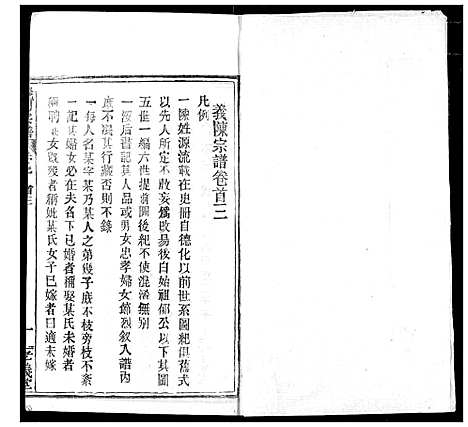 義陳宗譜卷首三
凡例
一陳姓源流載在史冊自德化以前世系圖俱舊式
以先人所定不敢妄爲改易白始祖郁公以下其圖
五世一編六世提前圖後紀不使混淆無別
一後后書記其人品或男女忠孝婦女節烈叙入譜內
庶不壞其行藏否則不錄
一每人名某字某乃某人之第幾子庶不枝旁枝不紊
一記其婦女必在夫名下已婚者稱娶某氏未婚者
稱聘某女毀幾者稱妣某氏女子已嫁者曰適未嫁
一